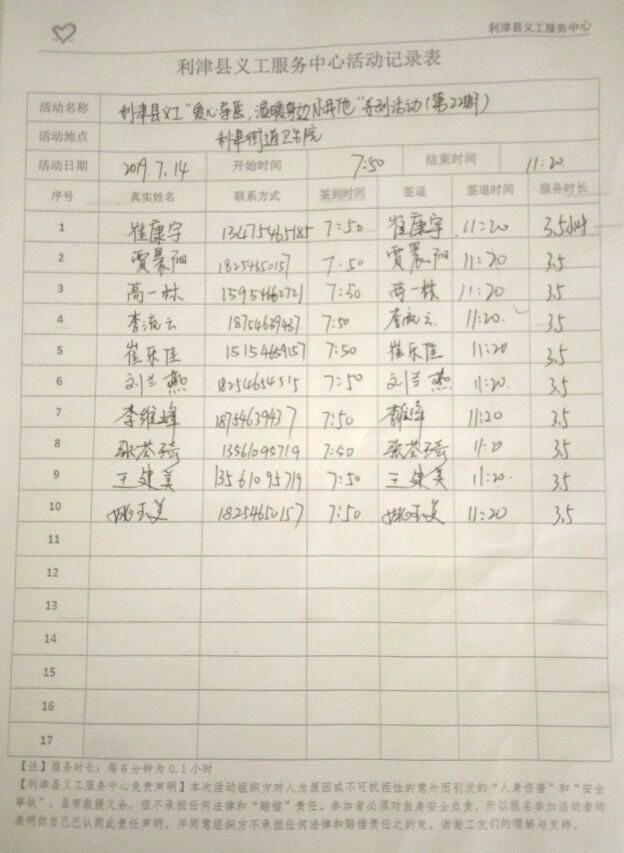 利津县义工服务中心
利津县义工服务中心活动记录表
活动名称 利津县义工"爱心导医,温暖身边你我他"系列活动(第22期)
活动地点 利津街道卫生院
活动日期 2019.7.14 开始时间 7:50 结束时间 11:20
序号 真实姓名 联系方式 签到时间 签退 签退时间 服务时长
1 崔康宇 13475465185 7:50 崔康宇 11:20 3.5小时
2 贾晨阳 18254650157 7:50 贾晨阳 11:20 3.5
3 高一林 15954662721 7:50 高一林 11:20 3.5
4 李流云 18754639437 7:50 李流云 11:20 3.5
5 崔乐佳 15154659157 7:50 崔乐佳 11:20 3.5
6 刘兰燕 18254654515 7:50 刘兰燕 11:20 3.5
7 李维峰 18754639437 7:50 11:20 3.5
8 张荟琦 13561095719 7:50 张荟琦 11:20 3.5
9 王建美 13561095719 7:50 王建美 11:20 3.5
10 姚玉美 18254650157 7:50 姚玉美 11:20 3.5
11
12
13
14
15
16
17
【注】服务时长:每6分钟为0.1小时
【利津县义工服务中心免责声明】本次活动组织方对人为原因或不可抗拒性的意外而引发的"人身伤害"和"安全
事故",虽有救援义务,但不承担任何法律和"赔偿"责任。参加者必须对自身安全负责,所以报名参加活动者均
表明你自己已认同此责任声明,并同意组织方不承担任何法律和赔偿责任之约定。谢谢工友们的理解与支持。